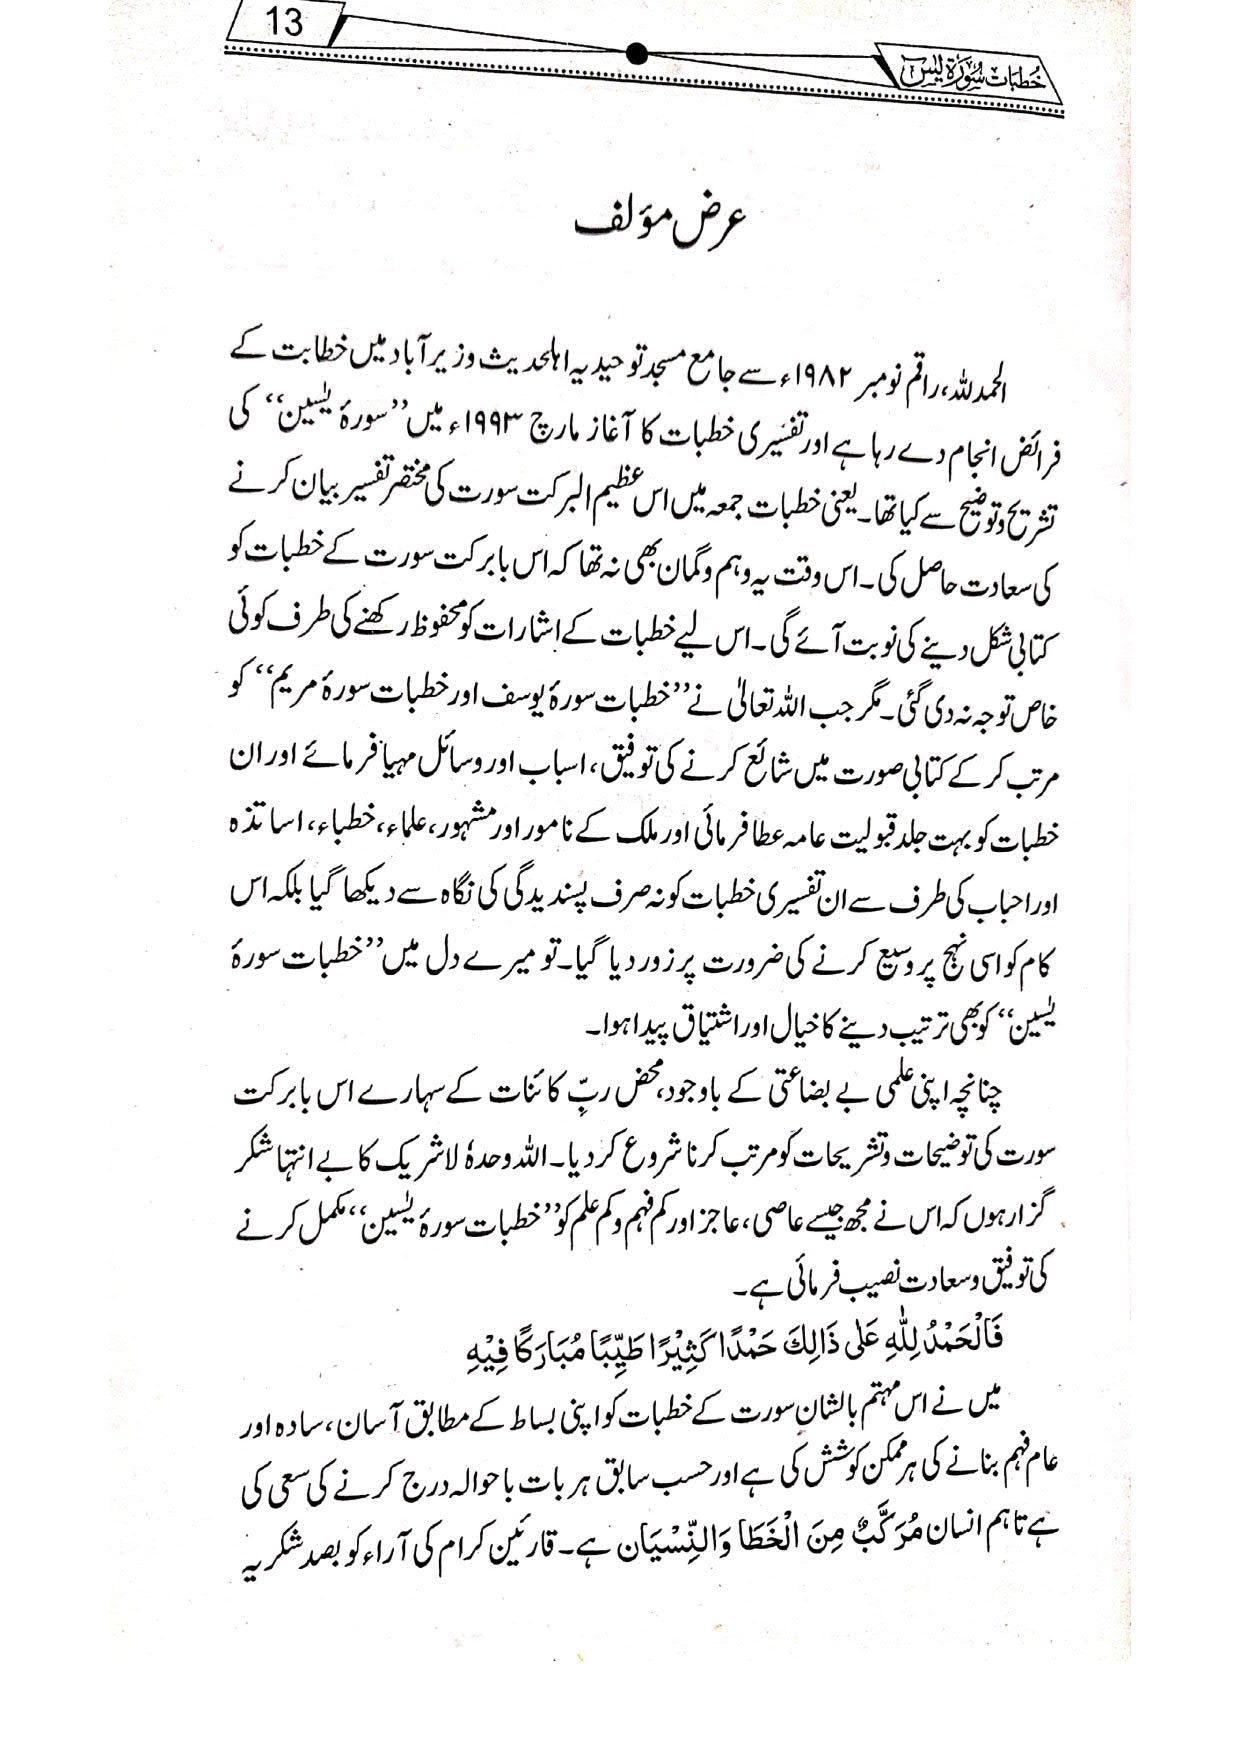 13
خطبات سُورَة يٰس
عرض مؤلف
الحمدللہ، راقم نومبر ۱۹۸۲ء سے جامع مسجد توحیدیہ اہلحدیث وزیر آباد میں خطابت کے
فرائض انجام دے رہا ہے اور تفسیری خطبات کا آغاز مارچ ۱۹۹۳ء میں ”سورۂ یٰسین“ کی
تشریح و توضیح سے کیا تھا۔ یعنی خطبات جمعہ میں اس عظیم البرکت سورت کی مختصر تفسیر بیان کرنے
کی سعادت حاصل کی۔ اس وقت یہ وہم و گمان بھی نہ تھا کہ اس بابرکت سورت کے خطبات کو
کتابی شکل دینے کی نوبت آئے گی۔ اس لیے خطبات کے اشارات کو محفوظ رکھنے کی طرف کوئی
خاص توجہ نہ دی گئی۔ مگر جب اللہ تعالیٰ نے ”خطبات سورۂ یوسف اور خطبات سورۂ مریم“ کو
مرتب کر کے کتابی صورت میں شائع کرنے کی توفیق، اسباب اور وسائل مہیا فرمائے اور ان
خطبات کو بہت جلد قبولیت عامہ عطا فرمائی اور ملک کے نامور اور مشہور، علماء، خطباء، اساتذہ
اور احباب کی طرف سے ان تفسیری خطبات کو نہ صرف پسندیدگی کی نگاہ سے دیکھا گیا بلکہ اس
کام کو اسی نہج پر وسیع کرنے کی ضرورت پر زور دیا گیا۔ تو میرے دل میں ”خطبات سورۂ
یٰسین“ کو بھی ترتیب دینے کا خیال اور اشتیاق پیدا ہوا۔
چنانچہ اپنی علمی بے بضاعتی کے باوجود، محض ربِّ کائنات کے سہارے اس بابرکت
سورت کی توضیحات و تشریحات کو مرتب کرنا شروع کر دیا۔ اللہ وحدہٗ لاشریک کا بے انتہا شکر
گزار ہوں کہ اس نے مجھ جیسے عاصی، عاجز اور کم فہم و کم علم کو ”خطبات سورۂ یٰسین“ مکمل کرنے
کی توفیق و سعادت نصیب فرمائی ہے۔
فَالْحَمْدُ لِلّٰهِ عَلٰى ذَالِكَ حَمْدًا كَثِيْرًا طَيِّبًا مُبَارَكًا فِيْهِ
میں نے اس مہتم بالشان سورت کے خطبات کو اپنی بساط کے مطابق آسان، سادہ اور
عام فہم بنانے کی ہر ممکن کوشش کی ہے اور حسب سابق ہر بات باحوالہ درج کرنے کی سعی کی
ہے تاہم انسان مُرَكَّبٌ مِنَ الْخَطَا وَالنِّسْيَان ہے۔ قارئین کرام کی آراء کو بصد شکریہ